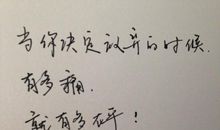 当你决定放弃的时候.
有多痛.
就有多在乎！